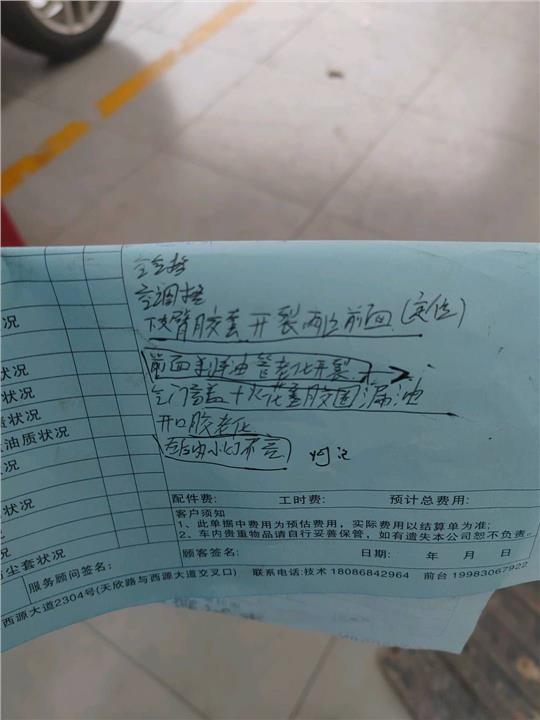 空气格
空调格
下支臂胶套开裂两边前面(定位)
前面刹车油管老化开裃
气门室盖+火花塞胶圈漏油
开口胶老化
右后内小灯不亮
况
状况
状况
油质状况
况
状况
状况
尘套状况
配件费: 工时费: 预计总费用:
客户须知
1、此单据中费用为预估费用，实际费用以结算单为准;
2、车内贵重物品请自行妥善保管，如有遗失本公司恕不负责。
服务顾问签名: 顾客签名: 日期: 年 月 日
西源大道2304号(天欣路与西源大道交叉口) 联系电话:技术 18086842964 前台 19983067922